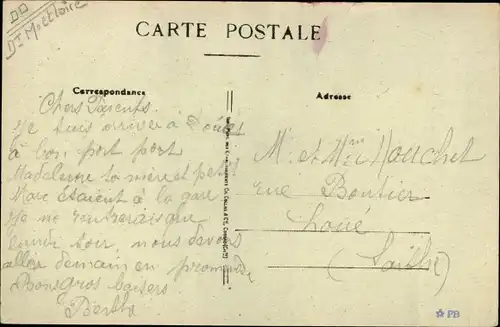 DD
Dt M et Loire
CARTE POSTALE
Correspondance
Adresse
Chers Parents.
Je suis arrivée à Doué
à bon port port
Madeleine la mère et petit
Marc étaient à la gare.
Je ne rentrerais que
lundi soir, nous devons
aller demain en promenade
Bons gros baisers
Berthe
M. et Mme Houchet
rue Boutier
Loué
(Sarthe)
PB